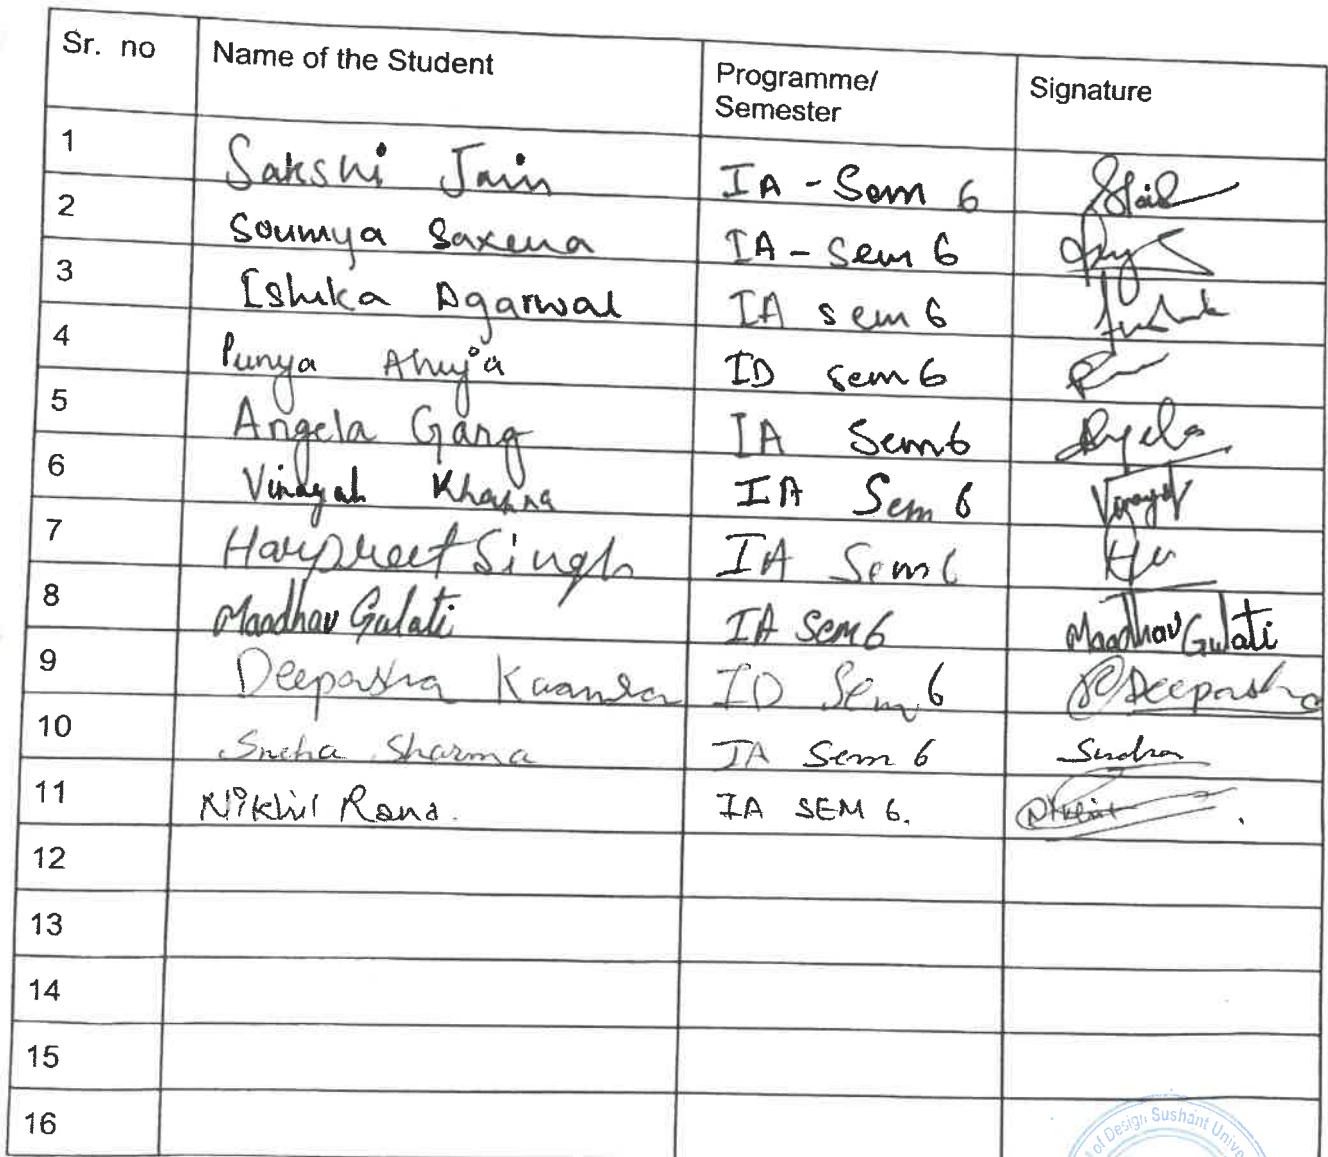 Sr. no Name of the Student Programme/ Semester Signature
1 Sakshi Jain IA - Sem 6
2 Soumya Saxena IA - Sem 6
3 Ishika Agarwal IA sem 6
4 Punya Ahuja ID sem 6
5 Angela Garg IA Sem 6 Angela
6 Vinayak Khanna IA Sem 6 Vinayak
7 Harpreet Singh IA Sem 6
8 Maadhav Gulati IA Sem 6 Maadhav Gulati
9 Deepasha ID Sem 6 Deepasha
10 Sneha Sharma IA Sem 6 Sneha
11 Nikhil Rana. IA SEM 6. Nikhil
12
13
14
15
16
of Design Sushant